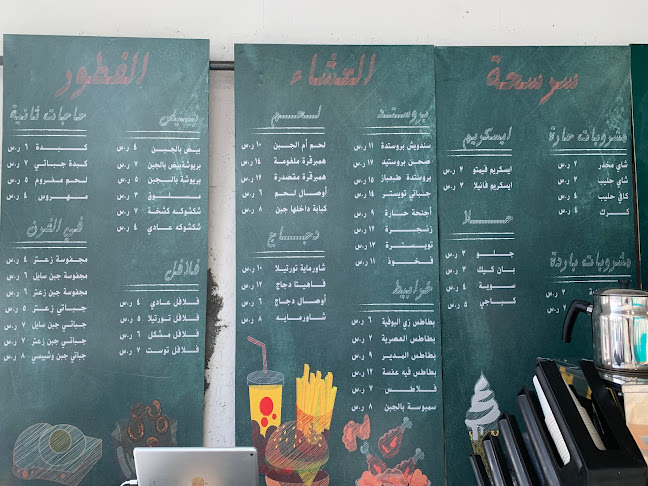 الفطور
بيض
بيض بالجبن ٤ ر.س
بريوشة بيض بالجبن ٧ ر.س
بريوشة بالجبن ٥ ر.س
مسلوق ٣ ر.س
شكشوكه كشخة ٧ ر.س
شكشوكه عادي ٤ ر.س
فلافل
فلافل عادي ٤ ر.س
فلافل تورتيلا ٥ ر.س
فلافل مشكل ٦ ر.س
فلافل توست ٧ ر.س
حاجات ثانية
كبدة ٦ ر.س
كبدة جباتي ٧ ر.س
لحم مفروم ٥ ر.س
مهروس ٤ ر.س
في الفرن
مجفوسة زعتر ٤ ر.س
مجفوسة جبن سايل ٦ ر.س
مجفوسة جبن زعتر ٦ ر.س
جباتي زعتر ٥ ر.س
جباتي جبن سايل ٧ ر.س
جباتي جبن زعتر ٧ ر.س
جباتي جبن وشيبسي ٨ ر.س
العشاء
بروستد
سندويش بروستدة ١١ ر.س
صحن بروستيد ١٧ ر.س
بروستدة طيعباز ١٥ ر.س
جباتي تويستر ١٤ ر.س
أجنحة حارة ٩ ر.س
زنجرة ١٢ ر.س
تويسترة ١٣ ر.س
فخوذ ١١ ر.س
خرابيط
بطاطس زي البوفية ٦ ر.س
بطاطس العصرية ٢ ر.س
بطاطس المدير ٩ ر.س
بطاطس فيه عفسة ١٢ ر.س
فلاطس ٧ ر.س
سمبوسة بالجبن ٨ ر.س
لحم
لحم أم الجبن ١٠ ر.س
همبرقرة ملغومة ١٤ ر.س
همبرقرة مقصدرة ١٢ ر.س
أوصال لحم ٦ ر.س
كبابة داخلها جبن ٨ ر.س
دجاج
شاورماية تورتيلا ١٠ ر.س
فاهيتا دجاج ١٢ ر.س
أوصال دجاج ٦ ر.س
شاورمايه ٨ ر.س
سرسحة
مشروبات حارة
شاي مخدر ٢ ر.س
شاي حليب ٢ ر.س
كافي حليب ٤ ر.س
كرك ٤ ر.س
مشروبات باردة
ايسكريم
ايسكريم فيمتو ٢ ر.س
ايسكريم فانيلا ٣ ر.س
حلا
جلو ٢ ر.س
بان كيك ٣ ر.س
سوبة ٤ ر.س
كباجي ٥ ر.س